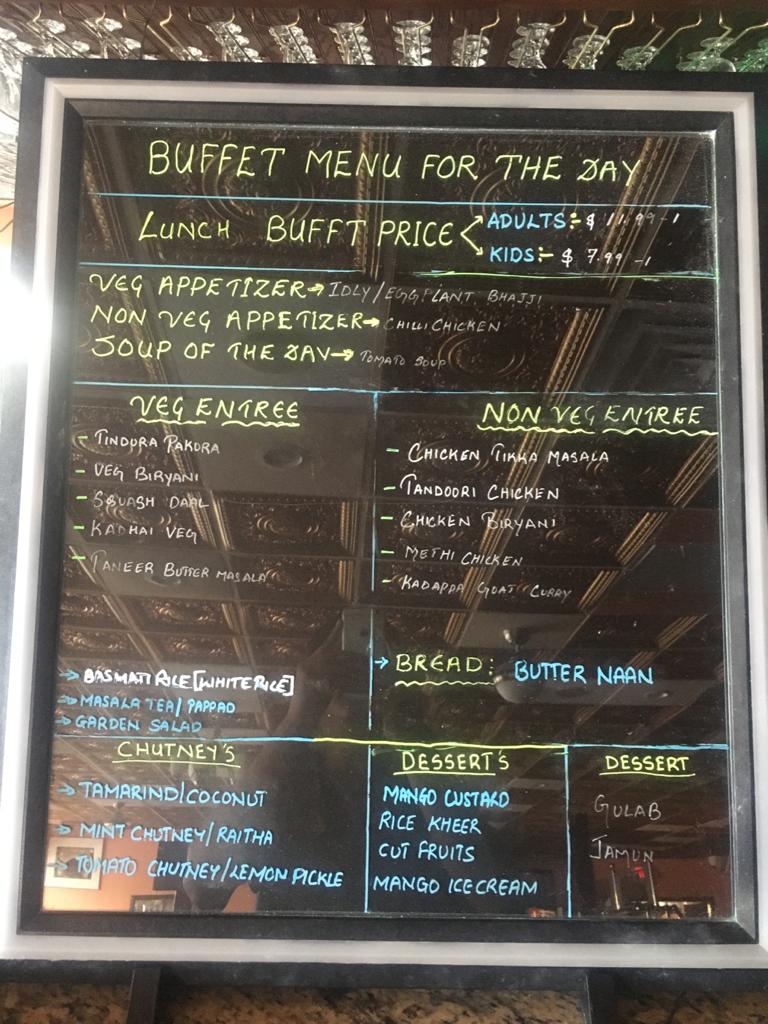 BUFFET MENU FOR THE DAY
LUNCH BUFFT PRICE
ADULTS:- $ 11.99 -1
KIDS:- $ 7.99 -1
VEG APPETIZER→ IDLY/EGGPLANT BHAJJI
NON VEG APPETIZER→ CHILLI CHICKEN
SOUP OF THE DAY→ TOMATO SOUP
VEG ENTREE
- TINDORA PAKORA
- VEG BIRYANI
- SQUASH DAAL
- KADHAI VEG
- PANEER BUTTER MASALA
→ BASMATI RICE [WHITE RICE]
→ MASALA TEA/ PAPPAD
→ GARDEN SALAD
NON VEG ENTREE
- CHICKEN TIKKA MASALA
- TANDOORI CHICKEN
- CHICKEN BIRYANI
- METHI CHICKEN
- KADAPPA GOAT CURRY
→ BREAD: BUTTER NAAN
CHUTNEY'S
→ TAMARIND/COCONUT
→ MINT CHUTNEY/RAITHA
→ TOMATO CHUTNEY/LEMON PICKLE
DESSERT'S
MANGO CUSTARD
RICE KHEER
CUT FRUITS
MANGO ICECREAM
DESSERT
GULAB
JAMUN